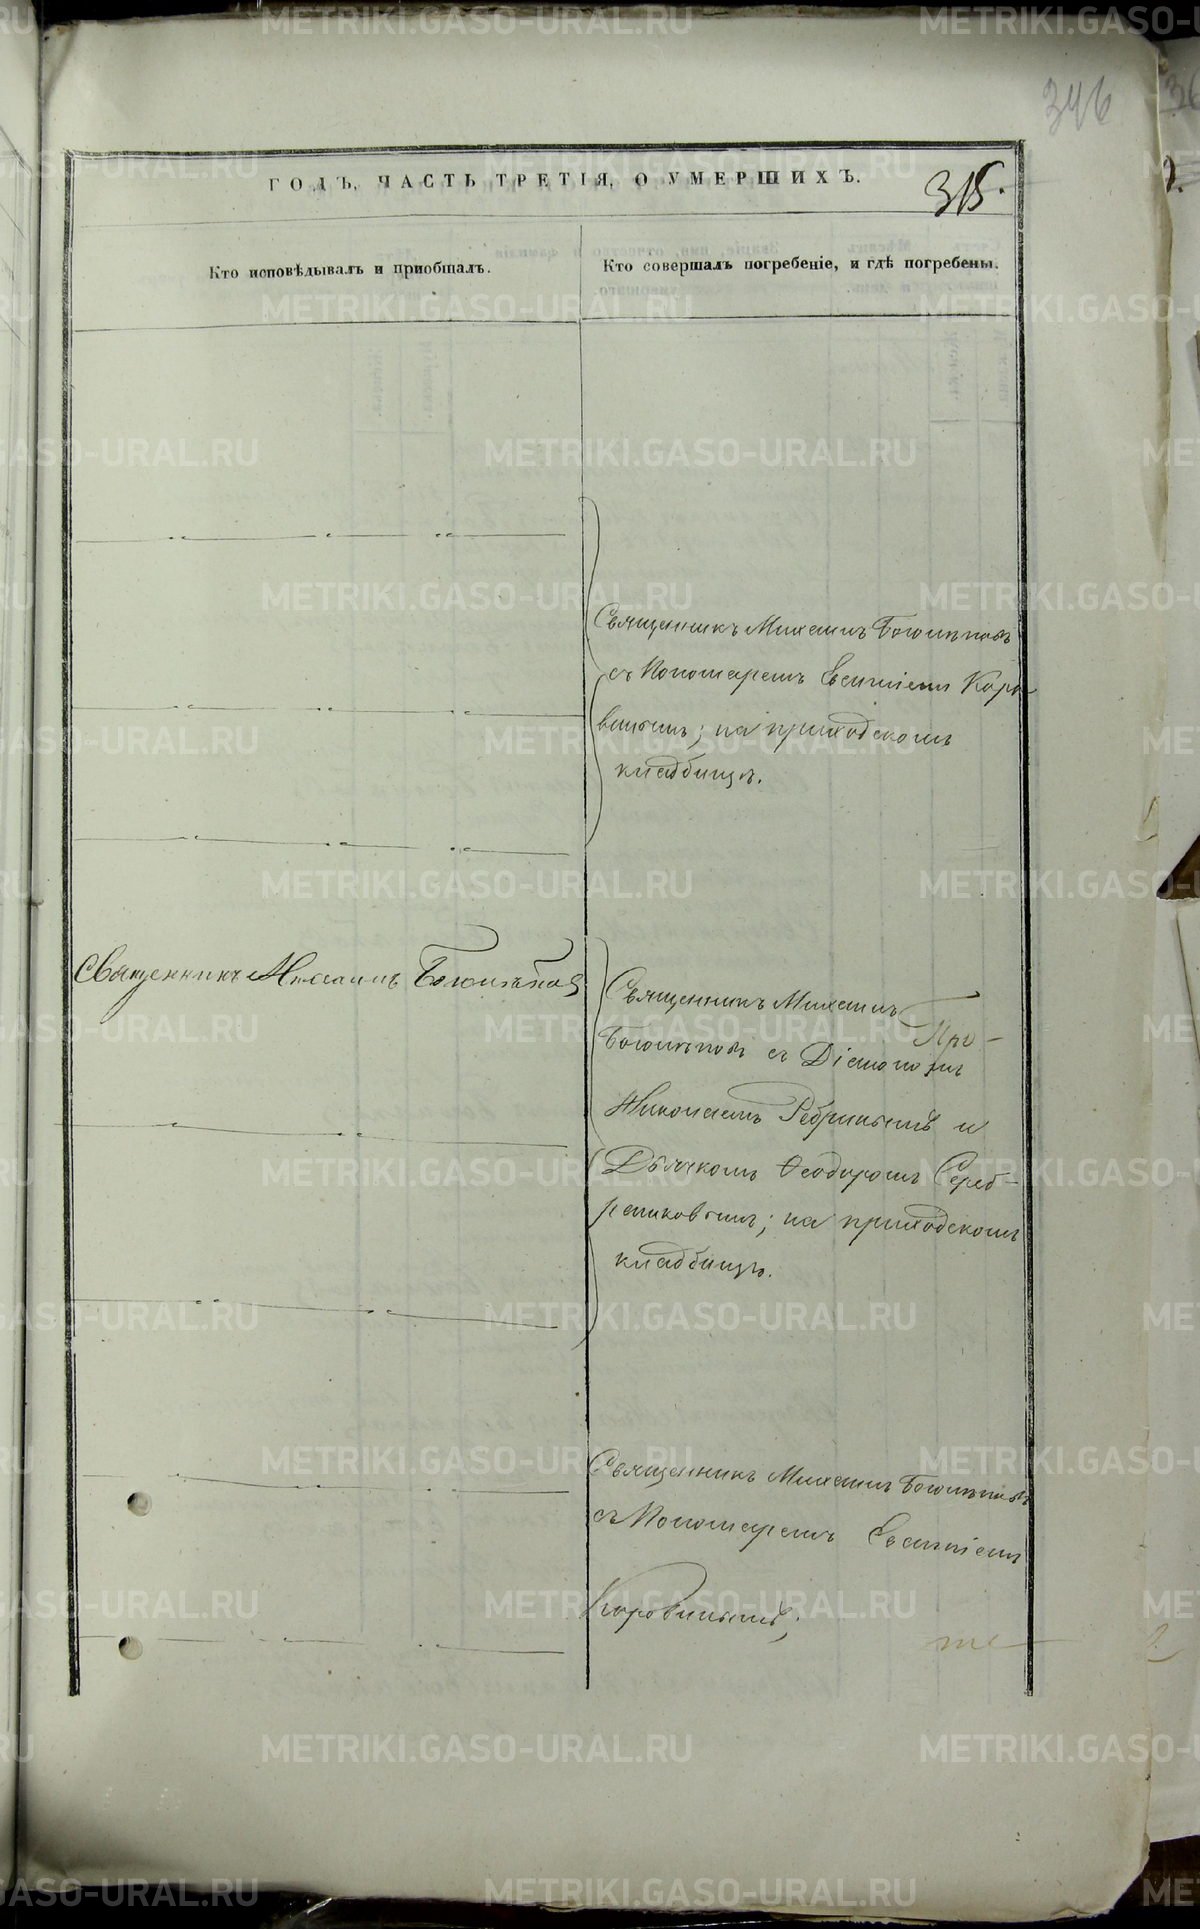 346
ГОДЪ, ЧАСТЬ ТРЕТІЯ, О УМЕРШИХЪ.
315.
Кто исповѣдывалъ и пріобщалъ.
Кто совершалъ погребеніе, и гдѣ погребены.
Священникъ Михаилъ Боголѣповъ
съ Пономаремъ Евгеніемъ Коро-
винымъ; на приходскомъ
кладбищѣ.
Священникъ Михаилъ Боголѣповъ
Священникъ Михаилъ
Боголѣповъ съ Діакономъ
Николаемъ и
Дьячкомъ Ѳеодоромъ Сереб-
рениковымъ; на приходскомъ
кладбищѣ.
Священникъ Михаилъ Боголѣповъ
съ Пономаремъ Евгеніемъ
Коровинымъ;
METRIKI.GASO-URAL.RU